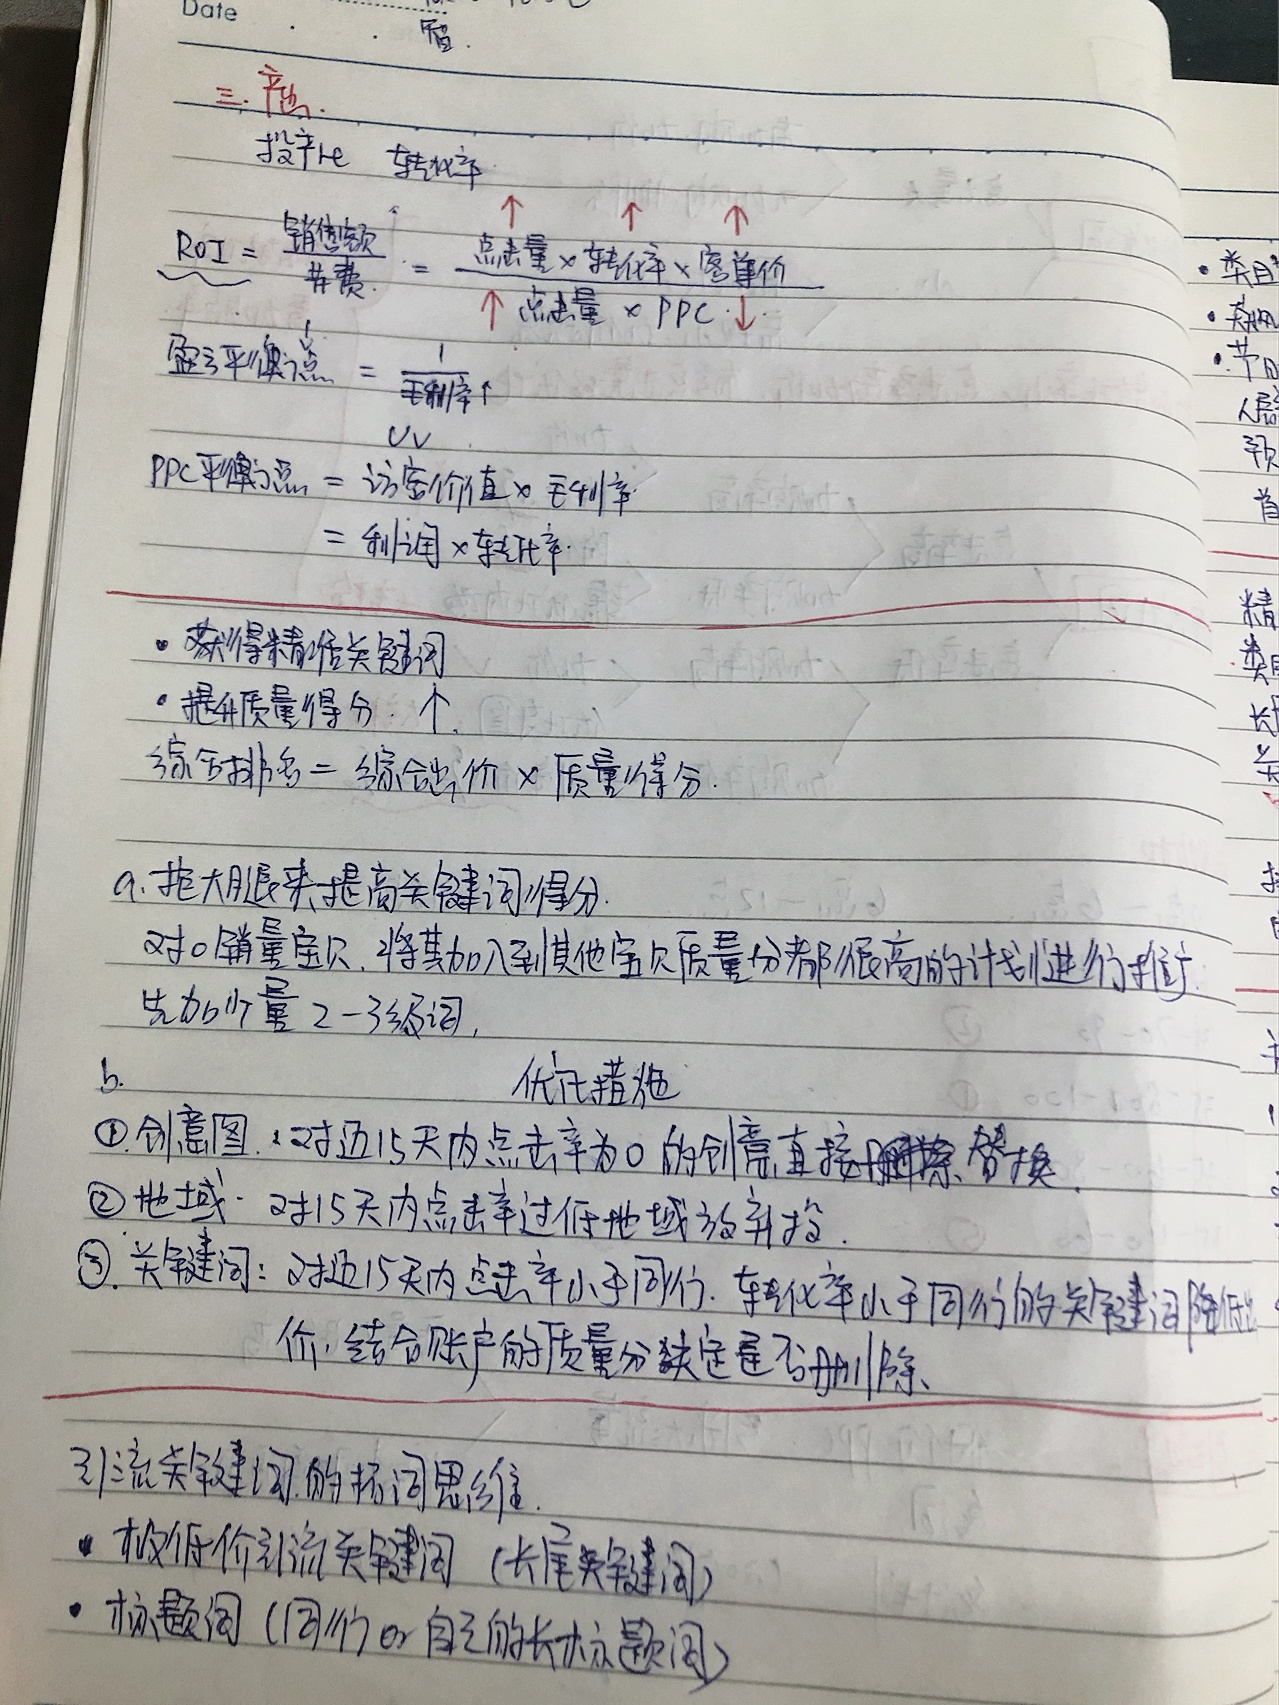 Date
三. 产出.
投产比 转化率
↑ ↑ ↑
ROI = 销售额 / 花费 = 点击量 × 转化率 × 客单价 / ↑ 点击量 × PPC ↓
盈亏平衡点 = 1 / 毛利率↑
UV
PPC平衡点 = 访客价值 × 毛利率
= 利润 × 转化率.
• 获得精准关键词
• 提升质量得分. ↑
综合排名 = 综合出价 × 质量得分.
a. 抱大腿来提高关键词得分.
对0销量宝贝, 将其加入到其他宝贝质量分都很高的计划进行推广
先加少量2-3级词,
b. 优化措施
① 创意图. 对近15天内点击率为0的创意直接 替换.
② 地域. 对15天内点击率过低地域放弃投.
③. 关键词: 对近15天内点击率小于同行. 转化率小于同行的关键词降低出
价, 结合账户的质量分决定是否删除、
引流关键词的拓词思维.
• 极低价引流关键词 (长尾关键词)
• 标题词 (同行 or 自己的长标题词)
• 类目
•
• 节日
人
预
首
精
类目
长